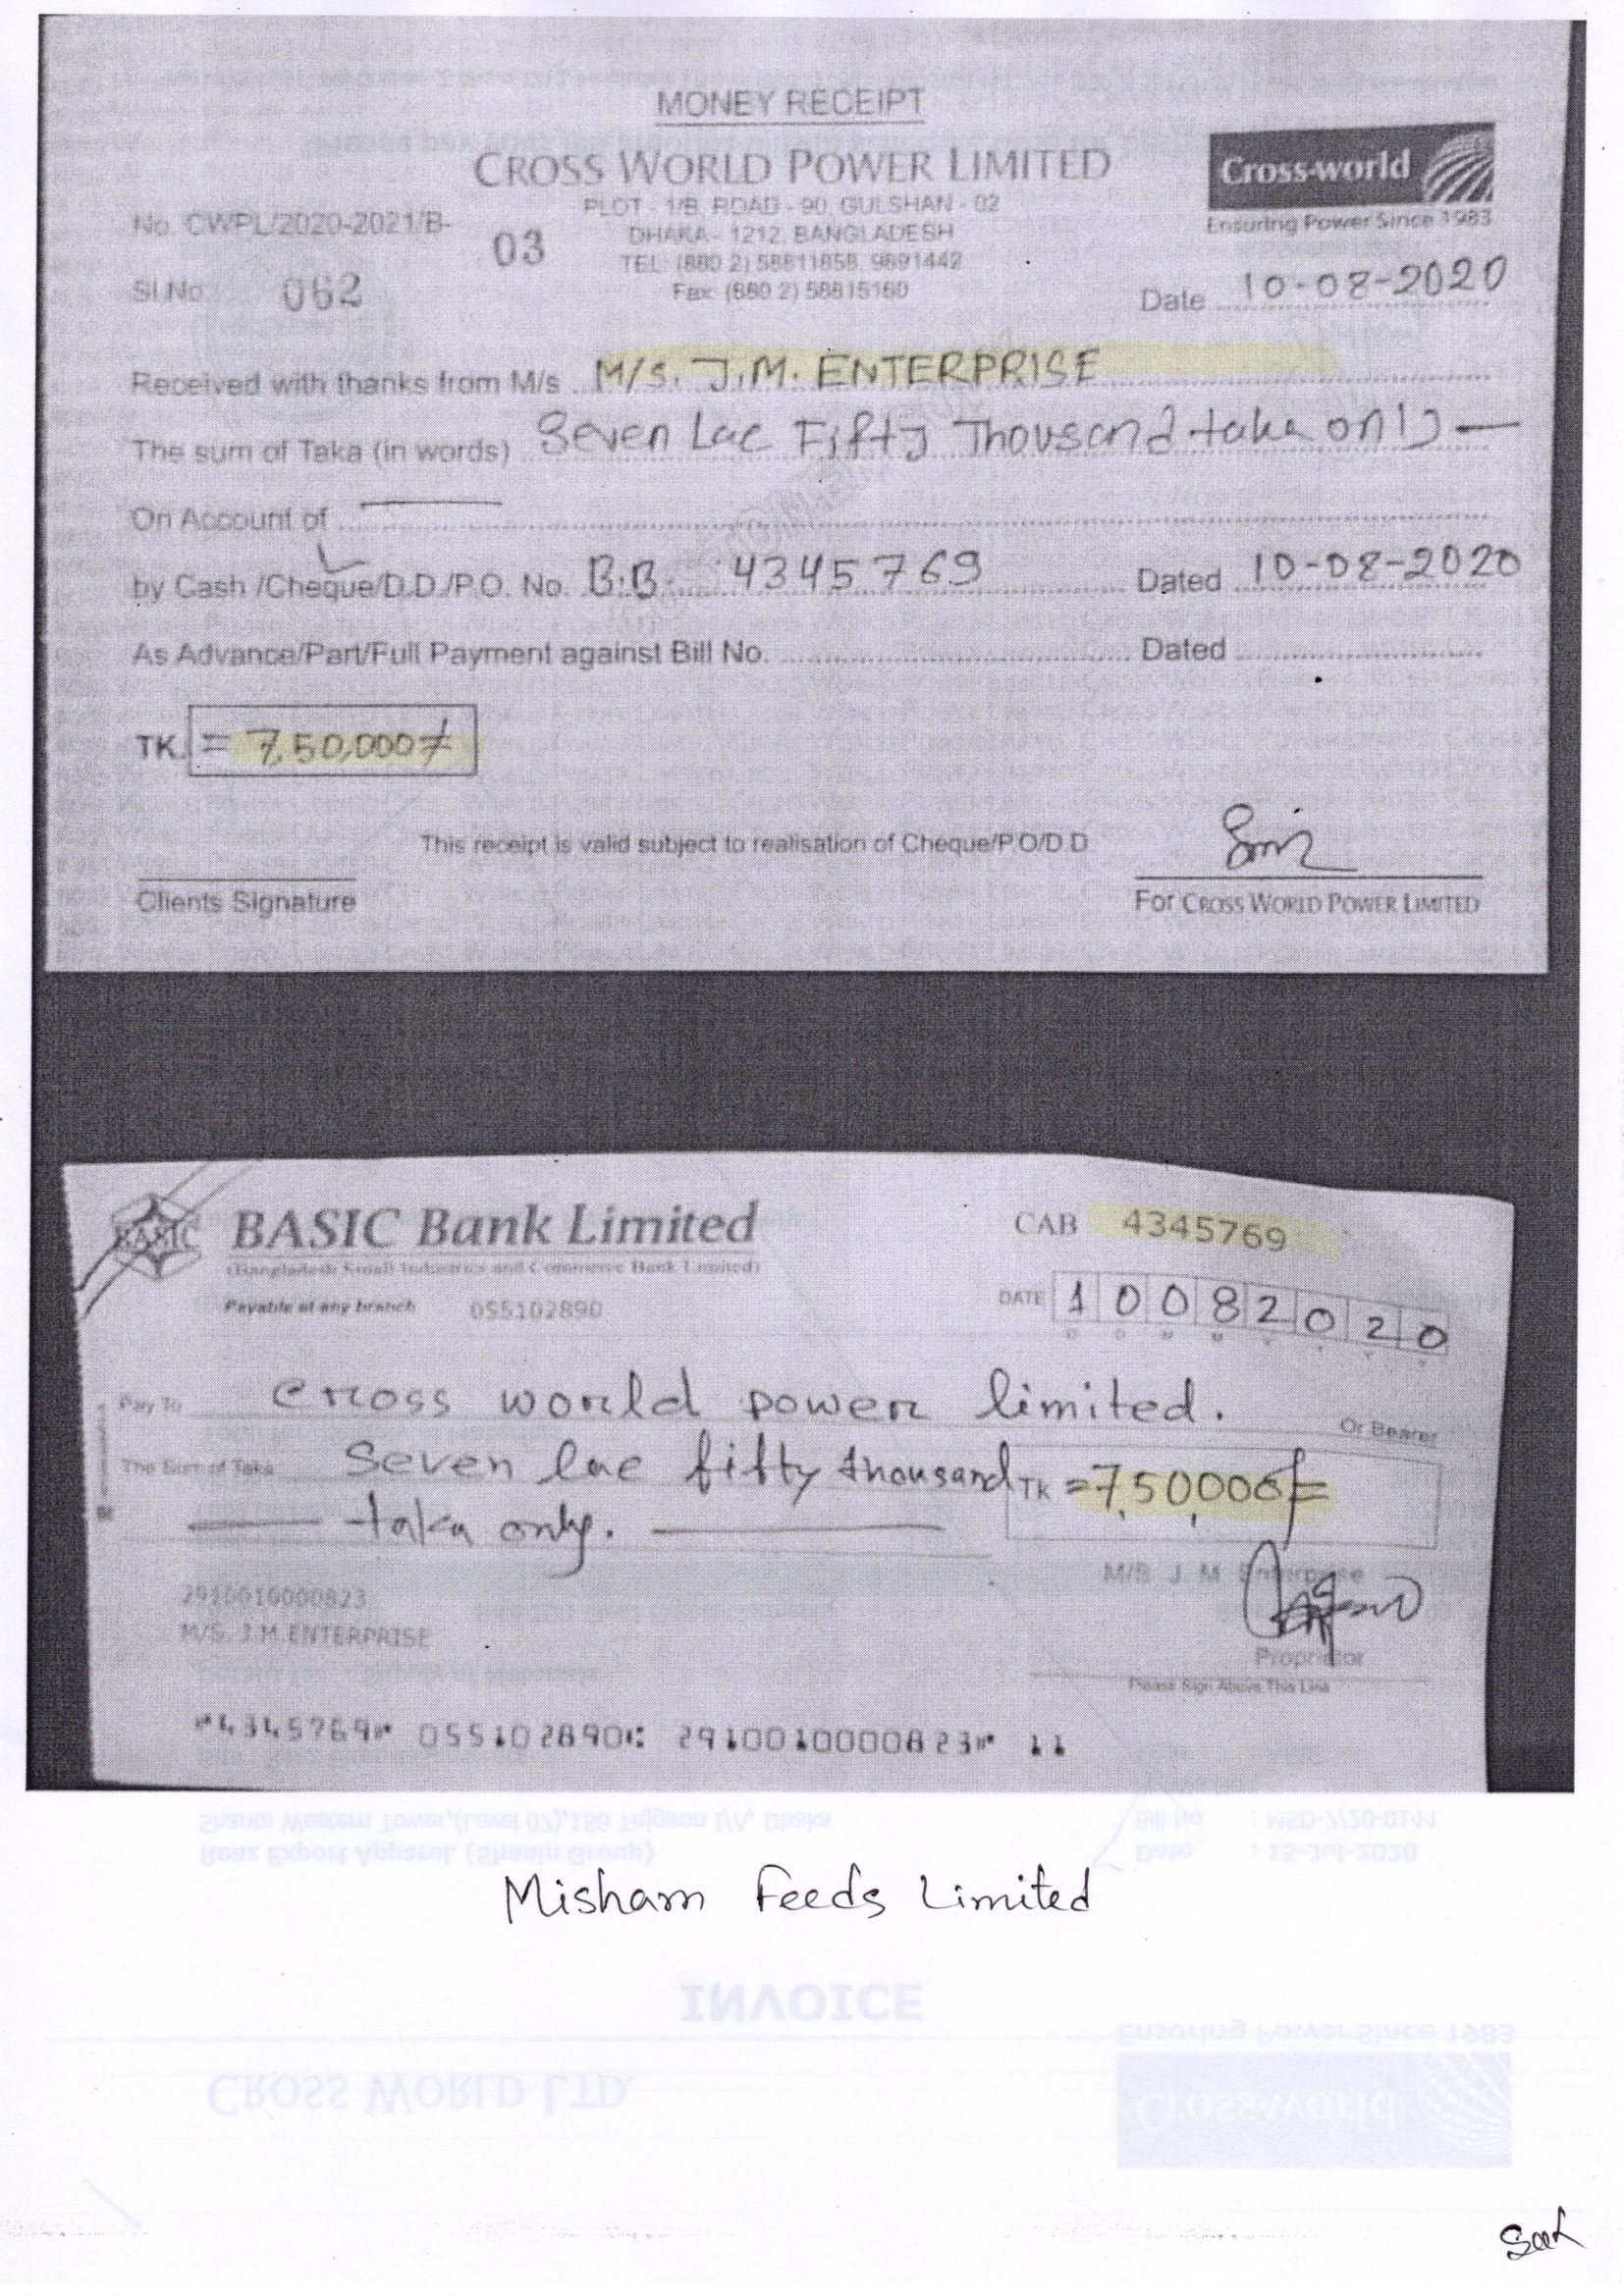 MONEY RECEIPT
CROSS WORLD POWER LIMITED
PLOT - 1/B, ROAD - 90, GULSHAN - 02
DHAKA - 1212, BANGLADESH
TEL: (880 2) 58811858, 9891442
Fax: (880 2) 58815160
Cross-world
Ensuring Power Since 1983
No. CWPL/2020-2021/B- 03
Sl.No. 062
Date 10-08-2020
Received with thanks from M/s M/s. J.M. ENTERPRISE
The sum of Taka (in words) Seven Lac Fifty Thousand taka only
On Account of
by Cash /Cheque/D.D./P.O. No. B.B. 4345769 Dated 10-08-2020
As Advance/Part/Full Payment against Bill No. Dated
TK. = 7,50,000/=
This receipt is valid subject to realisation of Cheque/P.O/D.D
Clients Signature
For CROSS WORLD POWER LIMITED
BASIC
BASIC Bank Limited
(Bangladesh Small Industries and Commerce Bank Limited)
Payable at any branch 055102890
CAB 4345769
DATE 10082020
D D M M Y Y Y Y
Pay To Cross world power limited. Or Bearer
The Sum of Taka Seven lac fifty thousand TK =7,50,000/=
taka only.
M/S J. M Enterprise
2910010000823
M/S. J.M.ENTERPRISE
Proprietor
Please Sign Above This Line
4345769 055102890 2910010000823 11
Shanta Western Tower,(Level 07),186 Tejgaon I/A, Dhaka
Bill No : MSD-7/20-0141
Reaz Export Apparel. (Shanin Group)
Date : 15-Jul-2020
Misham Feeds Limited
INVOICE
Ensuring Power Since 1983
CROSS WORLD LTD.
Cross-world